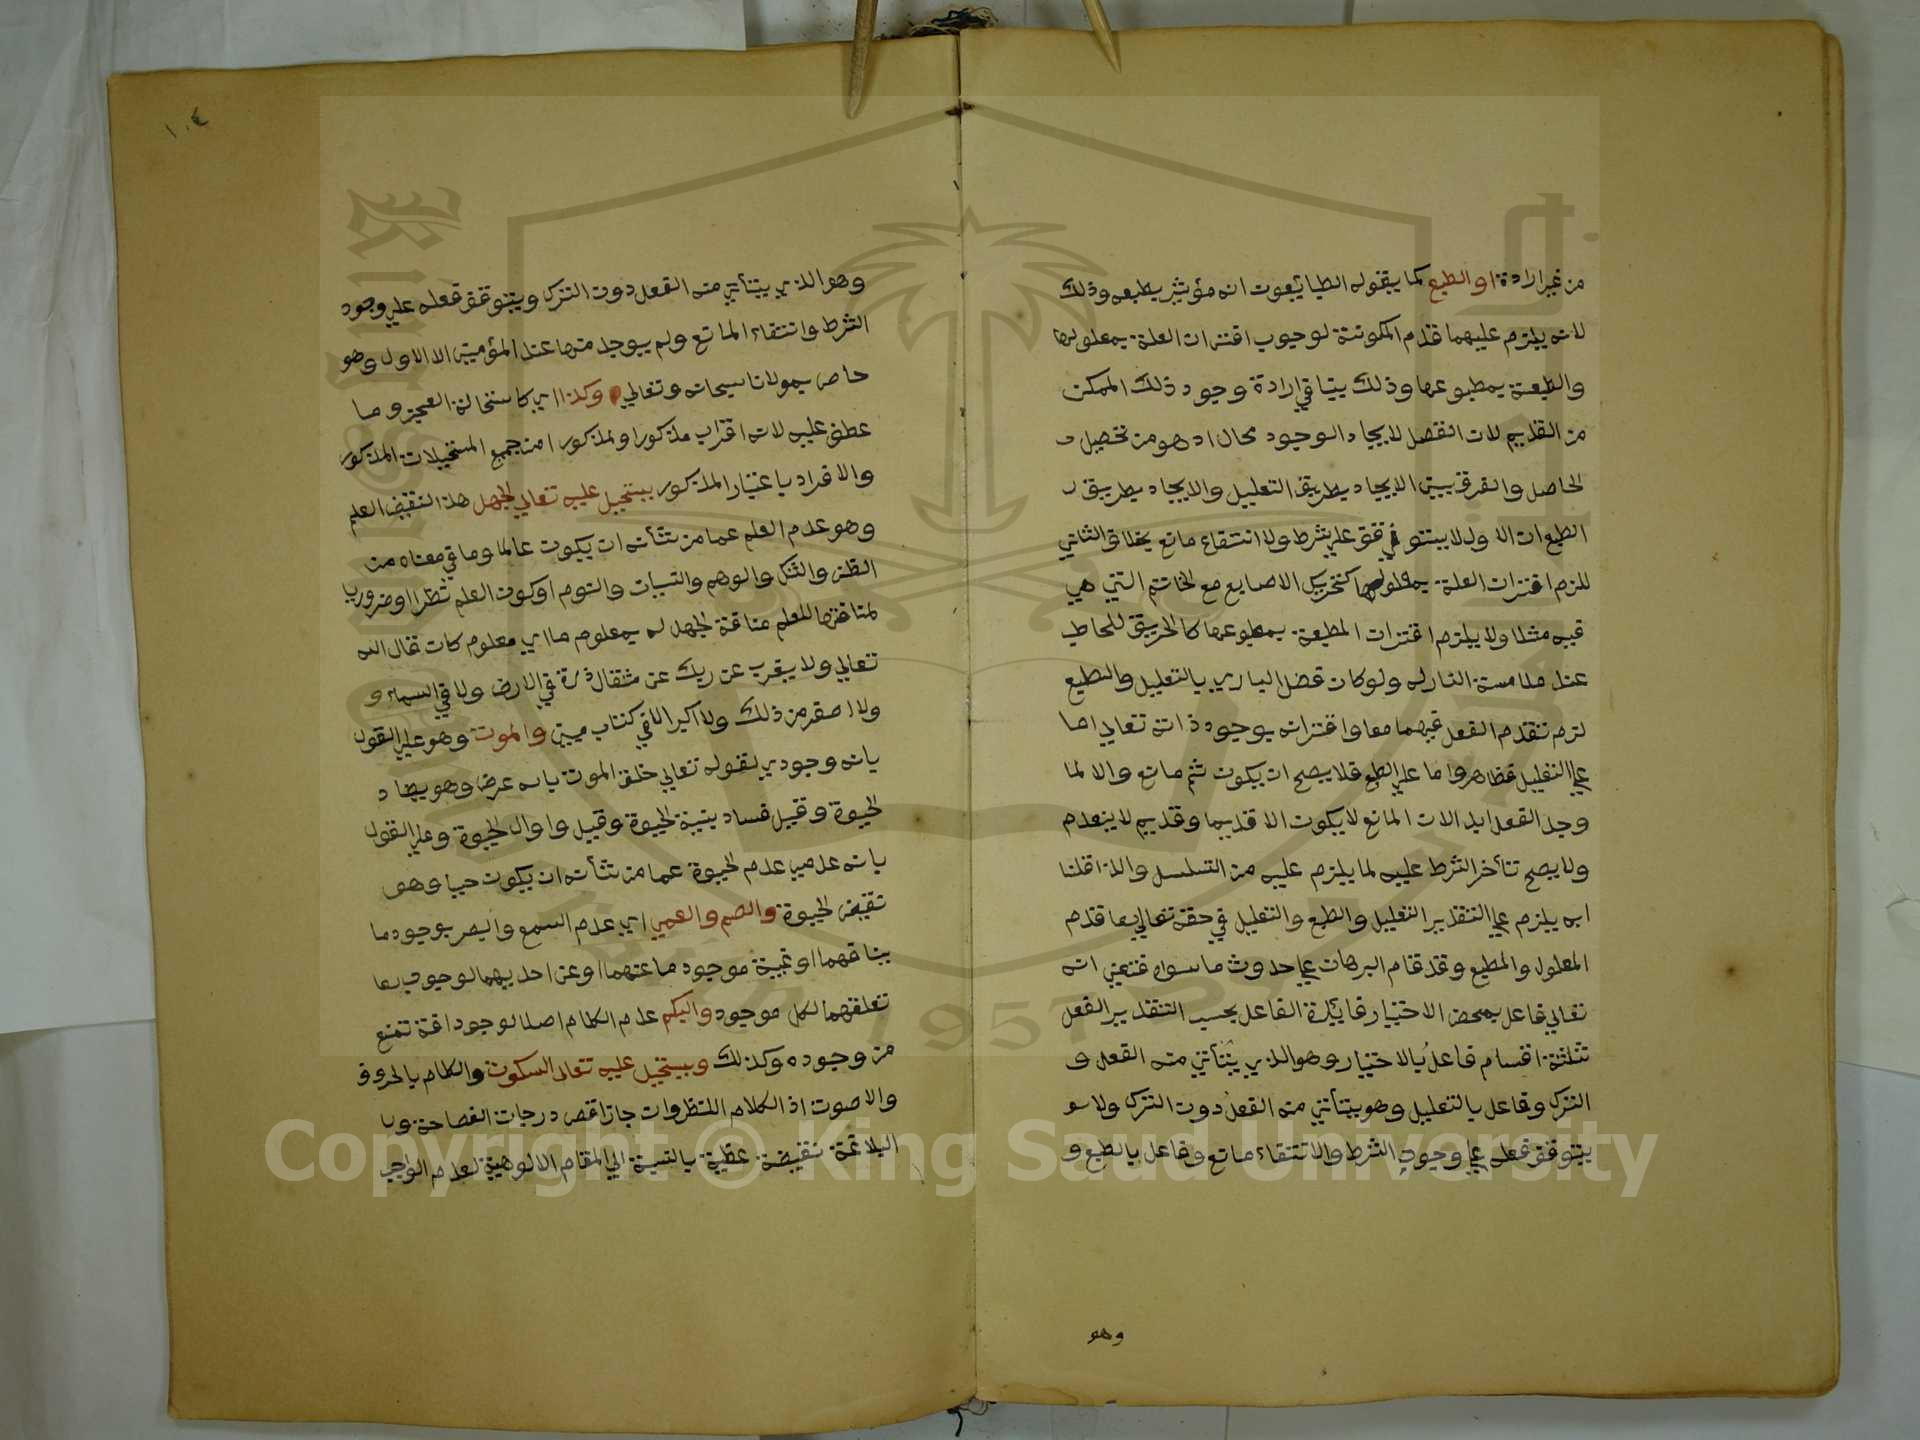 من غير ارادة او الطبع كما يقوله الطبايعون انه مؤثر بطبعه وذلك
لانه يلزم عليهما قدم المكونة لوجوب اقتران العلة بمعلولها
والطبعة بمطبوعها وذلك ينافي ارادة وجود ذلك الممكن
من القديم لان القصل لايجاد الوجود محال اد هو من تحصيل
الحاصل والفرق بين الايجاد بطريق التعليل والايجاد بطريق
الطبع ان الاول لا يتوقف علي شرط ولا انتفاء مانع بخلاف الثاني
للزم اقتران العلة بمعلولها كتحريك الاصابع مع الخاتم التي هي
فيه مثلا ولا يلزم اقتران المطبعة بمطبوعها كالحريق للحاطب
عند ملامسة النار له ولو كان فضل الباري بالتعليل والطبع
لزم تقدم الفعل فيهما معا واقترانه بوجود ذاته تعالي اما
علي التعليل فظاهر واما علي الطبع فلا يصح ان يكون ثم مانع والا لما
وجد الفعل ابدا لان المانع لا يكون الا قديما وقديم لا ينعدم
ولا يصح تأخر الشرط عليه لما يلزم عليه من التسلسل واللذا قلنا
ابه يلزم علي التقدير التعليل والطبع والتعليل في حقه تعالي ايعا قدم
المعلول والمطبع وقد قام البرهان علي حدوث ما سواه فتعين انه
تعالي فاعل بمحض الاختيار فايدة الفاعل بحسب التقدير الفعل
ثلثة اقسام فاعل بالاختيار وهو الذي يتأتي منه الفعل و
الترك وفاعل بالتعليل وهو يتأتي منه الفعل دون الترك ولا
يتوقف فعله علي وجود الشرط والانتفاء مانع وفاعل بالطبع و
وهو
١٠٤
وهو الذي يتأتي منه الفعل دون الترك ويتوقف فعله علي وجود
الشرط وانتفاء المانع ولم يوجد منها عند المؤمين الا الاول وهو
خاص بمولانا سبحانه وتعالي وكذا اي كاستحالة العجز وما
عطف عليه لانه اقرب مذكورا ولمذكور امن جميع المستحيلات المذكور
والافراد باعتبار المذكور يستحيل عليه تعالي الجهل هذا النقيض العلم
وهو عدم العلم عما من شأنه ان يكون عالما وما في معناه من
الظن والشك والوهم والنسيان والنوم او كون العلم نظرا او ضروريا
لمنافتها للعلم منافة الجهل له بمعلوم ما اي معلوم كان فقال الله
تعالي ولا يعزب عن ربك عن مثقال ذرة في الارض ولا في السماء و
ولا اصغر من ذلك ولا اكبر الا في كتاب مبين والموت وهو علي القول
بانه وجودي لقوله تعالي خلق الموت بانه عرض وهو يضاد
الحيوة وقيل فساد بنية الحيوة وقيل واوال الحيوة وعلي القول
بانه عدمي عدم الحيوة عما من شأنه ان يكون حيا وهو
نقيض الحيوة والصم والعمي اي عدم السمع والبصر بوجود ما
ينافهما او غيبة موجود ما عنهما او عن احديهما لوجوب
تعلقهما لكل موجود والبكم عدم الكلام اصلا لوجود افة تمنع
من وجوده وكذلك ويستحيل عليه تعالي السكوت والكلام بالحروف
والاصوت اذ الكلام جاز اقصي درجات الفصاحة و
البلاغة نقيضة عظية بالنسبة الي المقام الالوهية لعدم الواجب
Copyright © King Saud University
1957